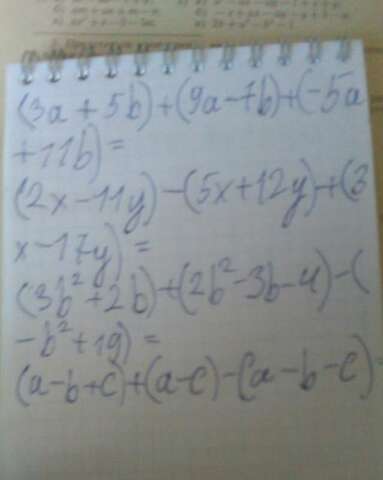 (3a + 5b) + (9a - 7b) + (-5a
+ 11b) =
(2x - 11y) - (5x + 12y) + (3
x - 17y) =
(3b² + 2b) + (2b² - 3b - 4) - (
- b² + 19) =
(a - b + c) + (a - c) - (a - b - c) =